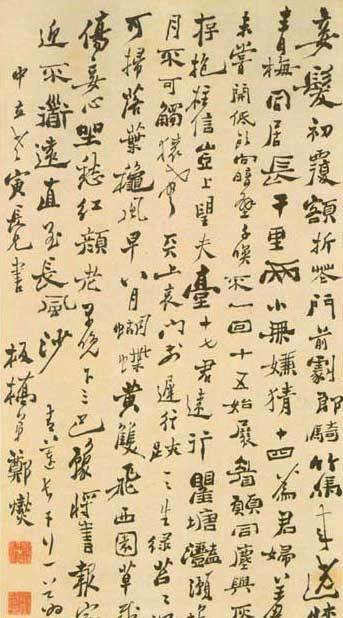 妾髮初覆額折花門前劇郎騎竹馬來遶牀
青梅同居長干里兩小無嫌猜十四為君婦羞
未嘗開低頭向暗壁千喚不一回十五始展眉願同塵與灰
存抱柱信豈上望夫臺十七君遠行瞿塘灩澦堆
月不可觸猿聲天上哀門前遲行跡一一生綠苔苔
可掃落葉秋風早八月蝴蝶黃雙飛西園草感
傷妾心坐愁紅顏老早晚下三巴豫將書報家
近不道遠直至長風沙 青蓮長干行一首為
中立老寅長兄書 板橋弟鄭燮